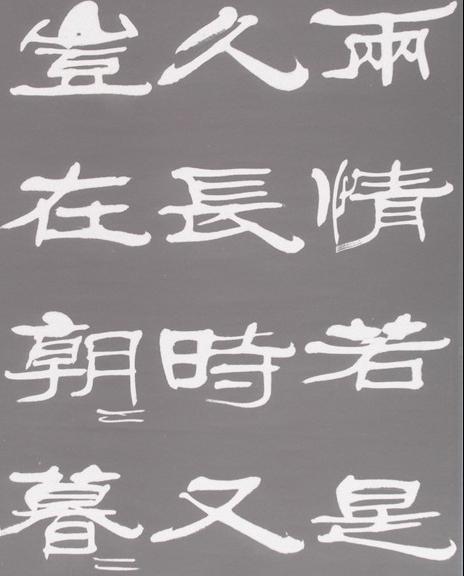 兩情若是
久長時又
豈在朝〻暮〻